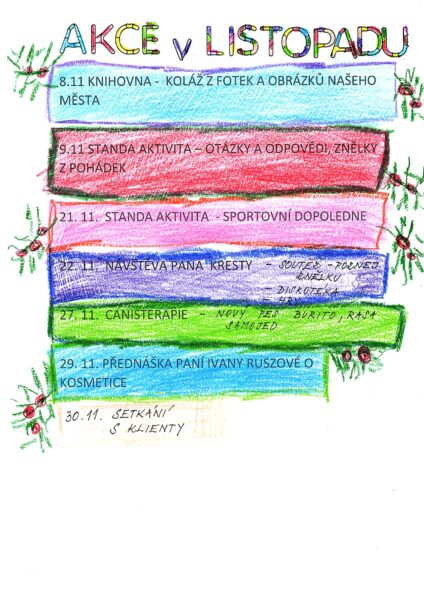 AKCE V LISTOPADU
8.11 KNIHOVNA - KOLÁŽ Z FOTEK A OBRÁZKŮ NAŠEHO
MĚSTA
9.11 STANDA AKTIVITA – OTÁZKY A ODPOVĚDI, ZNĚLKY
Z POHÁDEK
21. 11. STANDA AKTIVITA - SPORTOVNÍ DOPOLEDNE
22. 11. NÁVŠTĚVA PANA KRESTY - SOUTĚŽ - POZNEJ
ZNĚLKU
- DISKOTÉKA
- HRY
27. 11. CANISTERAPIE - NOVÝ PES BURITO, RASA
SAMOJED
29. 11. PŘEDNÁŠKA PANÍ IVANY RUSZOVÉ O
KOSMETICE
30.11. SETKÁNÍ
S KLIENTY